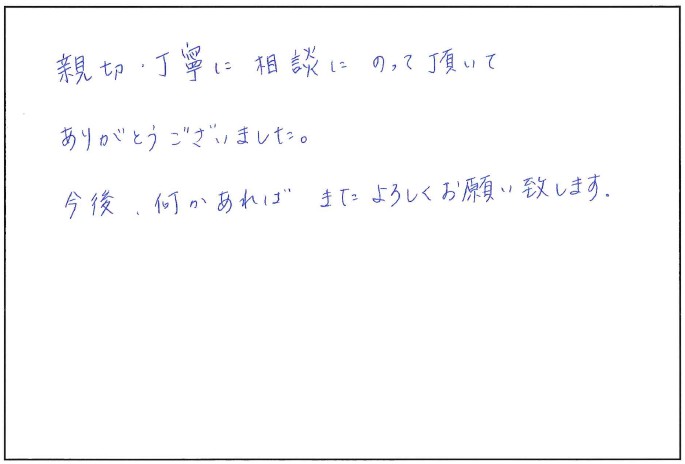 親切・丁寧に 相談に のって頂いて
ありがとうございました。
今後、何かあれば またよろしくお願い致します.